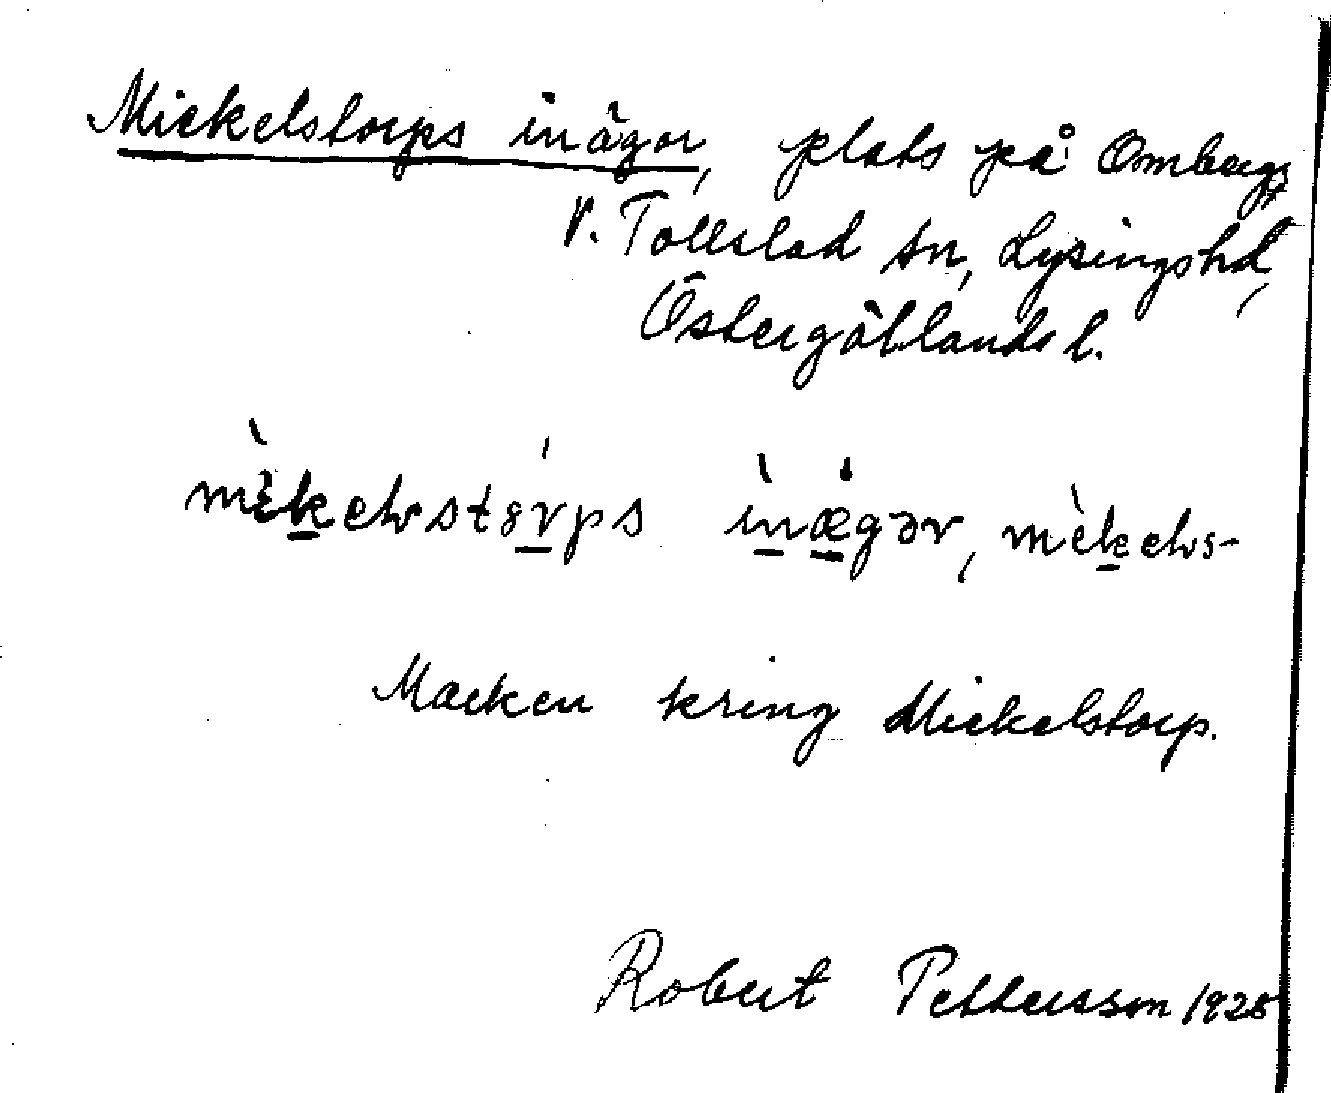 Mickelstorps inägor, plats på Omberg,
V. Tollstad sn, Lysings hd,
Östergötlands l.
mèkelstórps ìnægər, mèkels-
Marken kring Mickelstorp.
Robert Pettersson 1925